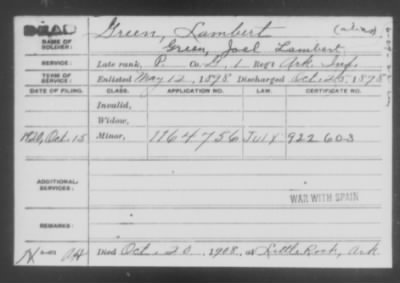 DEAD
NAME OF SOLDIER: Green, Lambert (alias)
Green, Joel Lambert
SERVICE: Late rank, P Co. D, 1 Reg't Ark. Inf.
TERM OF SERVICE: Enlisted May 12, 1898 Discharged Oct. 25, 1898
DATE OF FILING. CLASS. APPLICATION NO. LAW. CERTIFICATE NO.
Invalid,
Widow,
1920, Oct. 15 Minor, 1164756 July 8 922603
ADDITIONAL SERVICES:
WAR WITH SPAIN
REMARKS:
Died Oct. 20, 1908, at Little Rock, Ark.